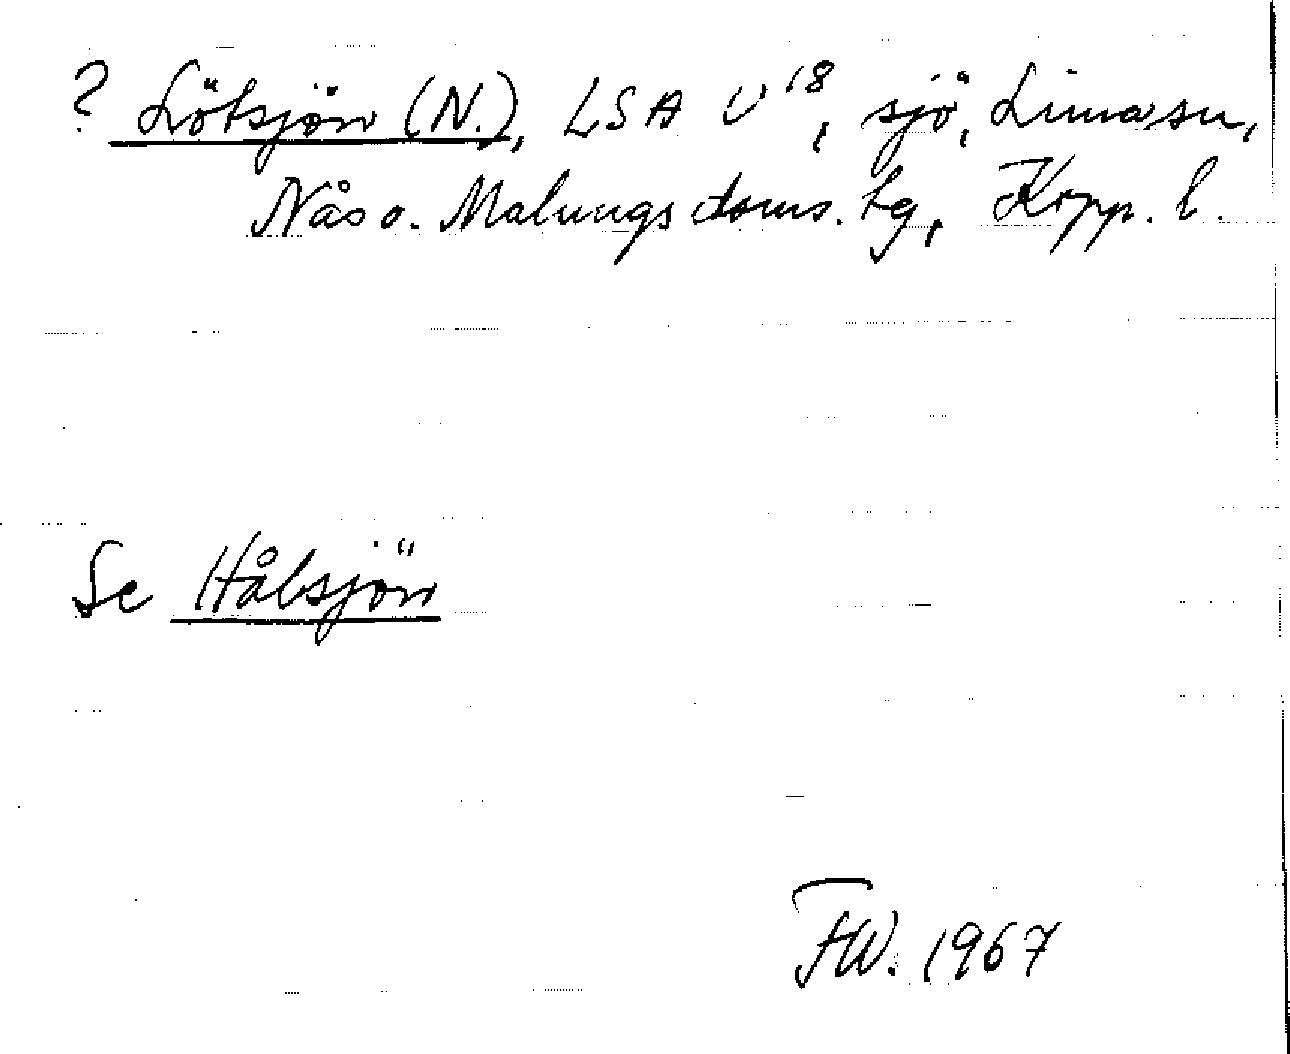 ? Lötsjön (N.), LSA U¹⁸, sjö, Lima sn,
Nås o. Malungs doms. tg, Kopp. l.
Se Hålsjön
FW. 1967